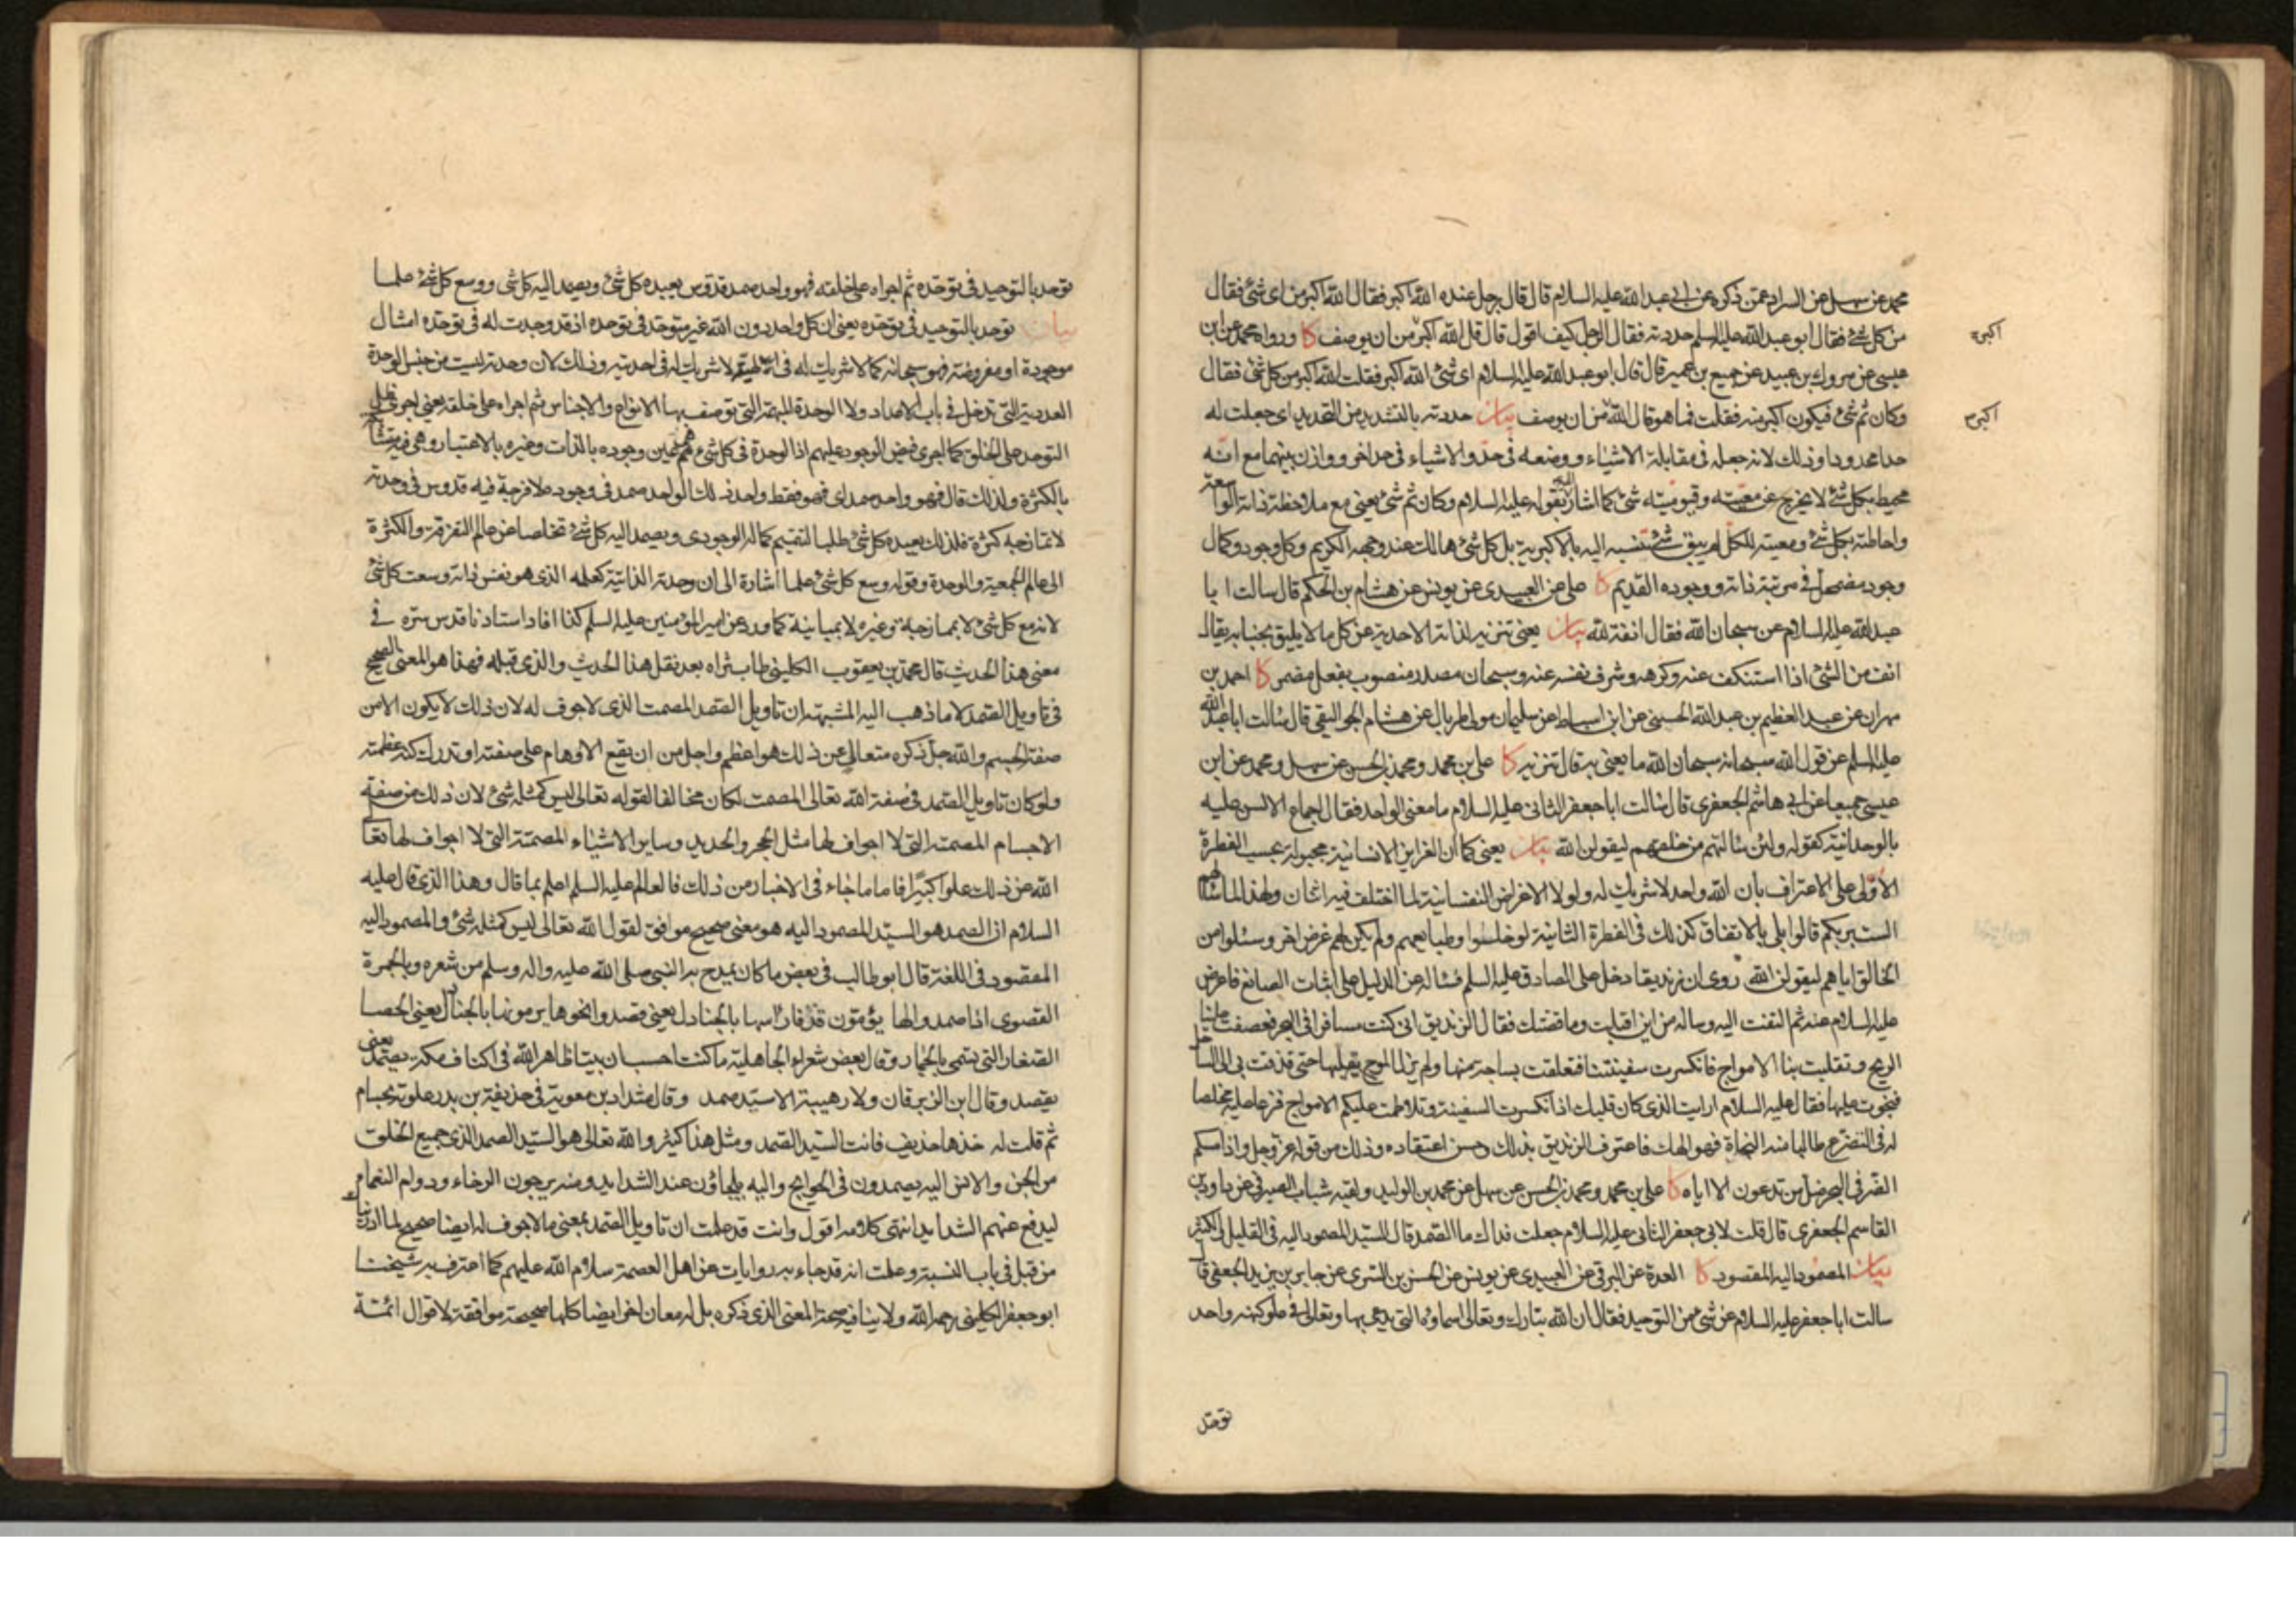 محمد عن سهل عن السراد عمن ذكره عن ابى عبدالله عليه السلام قال قال رجل عنده الله اكبر فقال الله اكبر من اى شئ فقال
من كل شئ فقال ابو عبدالله عليه السلم حددته فقال الرجل كيف اقول قال قل الله اكبر من ان يوصف كا ورواه محمد عن ابن
اكبر
عيسى عن مروك بن عبيد عن جميع بن عمير قال قال ابو عبدالله عليه السلام اى شئ الله اكبر فقلت الله اكبر من كل شئ فقال
وكان ثم شئ فيكون اكبر منه فقلت فما هو قال الله من ان يوصف بيان حددته بالتشديد من التحديد اى جعلت له
اكبر
حدا محدودا وذلك لانه جعله فى مقابلة الاشياء ووضعه فى حد والاشياء فى حد اخر ووازن بينهما مع انه
محيط بكل شئ لا يخرج عن معيته وقيوميته شئ كما اشار اليه بقوله عليه السلام وكان ثم شئ يعنى مع ملاحظة ذاته الواسعة
واحاطته بكل شئ ومعيته للكل لم يبق شئ تنسبه اليه بالاكبرية بل كل شئ هالك عند وجهه الكريم وكل وجود وكمال
وجود مضمحل فى مرتبة ذاته ووجوده القديم كا على عن العبيدى عن يونس عن هشام بن الحكم قال سالت ابا
عبدالله عليه السلام عن سبحان الله فقال انفة لله بيان يعنى تنزيه لذاته الاحدية عن كل ما لا يليق بجنابه يقال
انف من الشئ اذا استنكف عنه وكرهه وشرف نفسه عنه وسبحان مصدر منصوب بفعل مضمر كا احمد بن
مهران عن عبد العظيم بن عبدالله الحسنى عن ابن اسباط عن سليمان مولى طربال عن هشام الجواليقى قال سالت ابا عبد الله
عليه السلم عن قول الله سبحانه سبحان الله ما يعنى به قال تنزيه كا على بن محمد ومحمد بن الحسن عن سهل ومحمد عن ابن
عيسى جميعا عن ابى هاشم الجعفرى قال سالت ابا جعفر الثانى عليه السلام ما معنى الواحد فقال اجماع الالسن عليه
بالوحدانية كقوله ولئن سالتهم من خلقهم ليقولن الله بيان يعنى كما ان الغرايز الانسانية مجبولة بحسب الفطرة
الاولى على الاعتراف بان الله واحد لا شريك له ولولا الاغراض النفسانية لما اختلف فيه اثنان ولهذا لما سئلهم
الست بربكم قالوا بلى بالاتفاق كذلك فى الفطرة الثانية لو خلوا وطبايعهم ولم يكن لهم غرض اخر وسئلوا من
الخالق اياهم ليقولن الله روى ان زنديقا دخل على الصادق عليه السلم فساله عن الدليل على اثبات الصانع فاعرض
عليه السلام عنه ثم التفت اليه وساله من اين اقبلت وما قصتك فقال الزنديق انى كنت مسافرا فى البحر فعصفت علينا
الريح وتقلبت بنا الامواج فانكسرت سفينتنا فتعلقت بساجة منها ولم يزل الموج يقبلها حتى قذفت بى الى الساحل
فنجوت عليها فقال عليه السلام ارايت الذى كان قلبك اذا انكسرت السفينة وتلاطمت عليكم الامواج فزعا عليه مخلصا
له فى التضرع طالبا منه النجاة فهو الهك فاعترف الزنديق بذلك وحسن اعتقاده وذلك من قوله عز وجل واذا مسكم
الضر فى البحر ضل من تدعون الا اياه كا على بن محمد ومحمد بن الحسن عن سهل عن محمد بن الوليد ولقبه شباب الصيرفى عن داود بن
القاسم الجعفرى قال قلت لابى جعفر الثانى عليه السلام جعلت فداك ما الصمد قال السيد المصمود اليه فى القليل والكثير
بيان المصمود اليه المقصود كا العدة عن البرقى عن العبيدى عن يونس عن الحسن بن السرى عن جابر بن يزيد الجعفى قال
سالت ابا جعفر عليه السلام عن شئ من التوحيد فقال ان الله تبارك وتعالى اسماؤه التى يدعى بها وتعالى فى علو كنهه واحد
توحد
توحد بالتوحيد فى توحده ثم اجراه على خلقه فهو واحد صمد قدوس يعبده كل شئ ويصمد اليه كل شئ ووسع كل شئ علما
بيان توحد بالتوحيد فى توحده يعنى ان كل واحد دون الله غير متوحد فى توحده اذ قد وجدت له فى توحده امثال
موجودة او مفروضة فهو سبحانه كما لا شريك له فى الهيته لا شريك له فى احديته وذلك لان وحدته ليست من جنس الوحدة
العددية التى تدخل فى باب الاعداد ولا الوحدة المبهمة التى توصف بها الانواع والاجناس ثم اجراه على خلقه يعنى اجرى ظل
التوحد على الخلق كما اجرى فيض الوجود عليهم اذ الوحدة فى كل شئ هى عين وجوده بالذات وغيره بالاعتبار وهى فيه متشابكة
بالكثرة ولذلك قال فهو واحد صمد اى فهو فقط واحد لذلك الواحد صمد فى وجوده لا فرجة فيه قدوس فى وحدته
لا تمازجه كثرة فلذلك يعبده كل شئ طلبا لتتميم كماله الوجودى ويصمد اليه كل شئ تخلصا عن عالم التفرقة والكثرة
الى عالم الجمعية والوحدة وقوله وسع كل شئ علما اشارة الى ان وحدته الذاتية كعلمه الذى هو نفس ذاته وسعت كل شئ
لانه مع كل شئ لا بممازجة وغيره لا بمباينة كما ورد عن امير المؤمنين عليه السلم كذا افاد استادنا قدس سره فى
معنى هذا الحديث قال محمد بن يعقوب الكلينى طاب ثراه بعد نقل هذا الحديث والذى قبله فهذا هو المعنى الصحيح
فى تاويل الصمد لا ما ذهب اليه المشبهة ان تاويل الصمد المصمت الذى لا جوف له لان ذلك لا يكون الا من
صفة الجسم والله جل ذكره متعالى عن ذلك هو اعظم واجل من ان يقع الاوهام على صفته او تدرك كنه عظمته
ولو كان تاويل الصمد فى صفة الله تعالى المصمت لكان مخالفا لقوله تعالى ليس كمثله شئ لان ذلك من صفة
الاجسام المصمتة التى لا اجواف لها مثل الحجر والحديد وساير الاشياء المصمتة التى لا اجواف لها تعالى
الله عن ذلك علوا كبيرا فاما ما جاء فى الاخبار من ذلك فالعالم عليه السلم اعلم بما قال وهذا الذى قال عليه
السلام ان الصمد هو السيد المصمود اليه هو معنى صحيح موافق لقول الله تعالى ليس كمثله شئ والمصمود اليه
المقصود فى اللغة قال ابو طالب فى بعض ما كان يمدح به النبى صلى الله عليه واله وسلم من شعره وبالجمرة
القصوى اذا صمدوا لها يؤمون قذفا راسها بالجنادل يعنى قصدوا نحوها يرمونها بالجنادل يعنى الحصا
الصغار التى تسمى بالجمار وقال بعض شعراء الجاهلية ما كنت احسب ان بيتا ظاهرا لله فى اكناف مكة يصمد يعنى
يقصد وقال ابن الزبرقان ولا رهيبة الا سيد صمد وقال شداد بن معوية فى حذيفة بن بدر علوته بحسام
ثم قلت له خذها حذيف فانت السيد الصمد ومثل هذا كثير والله تعالى هو السيد الصمد الذى جميع الخلق
من الجن والانس اليه يصمدون فى الحوايج واليه يلجاؤن عند الشدايد ومنه يرجون الرخاء ودوام النعماء
ليدفع عنهم الشدايد انتهى كلامه اقول وانت قد علمت ان تاويل الصمد بمعنى ما لا جوف له ايضا صحيح لما
من قبل فى باب النسبة وعلمت انه قد جاء به روايات عن اهل العصمة سلام الله عليهم كما اعترف به شيخنا
ابو جعفر الكلينى رحمه الله ولا ينافيه صحة المعنى الذى ذكره بل له معان اخر ايضا كلها صحيحة موافقة لاقوال ائمة